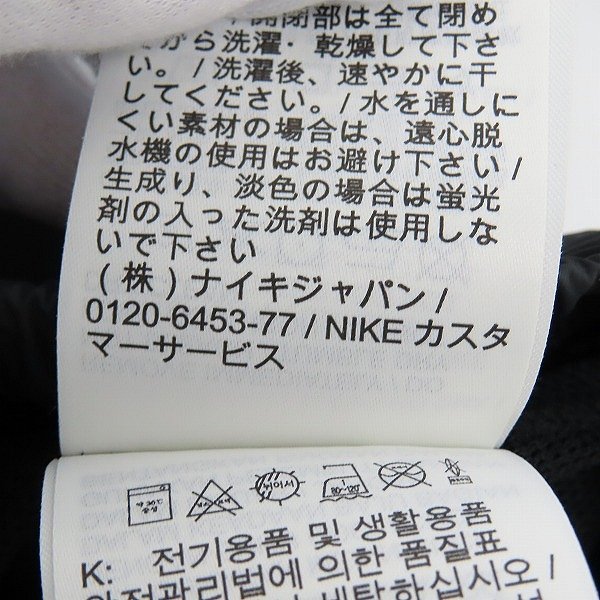 開閉部は全て閉め
てから洗濯・乾燥して下さ
い。/洗濯後、速やかに干
してください。/水を通しに
くい素材の場合は、遠心脱
水機の使用はお避け下さい/
生成り、淡色の場合は蛍光
剤の入った洗剤は使用しな
いで下さい
(株)ナイキジャパン/
0120-6453-77 / NIKE カスタ
マーサービス
80~120
K: 전기용품 및 생활용품
안전관리법에 의한 품질표
세탁하십시오 /